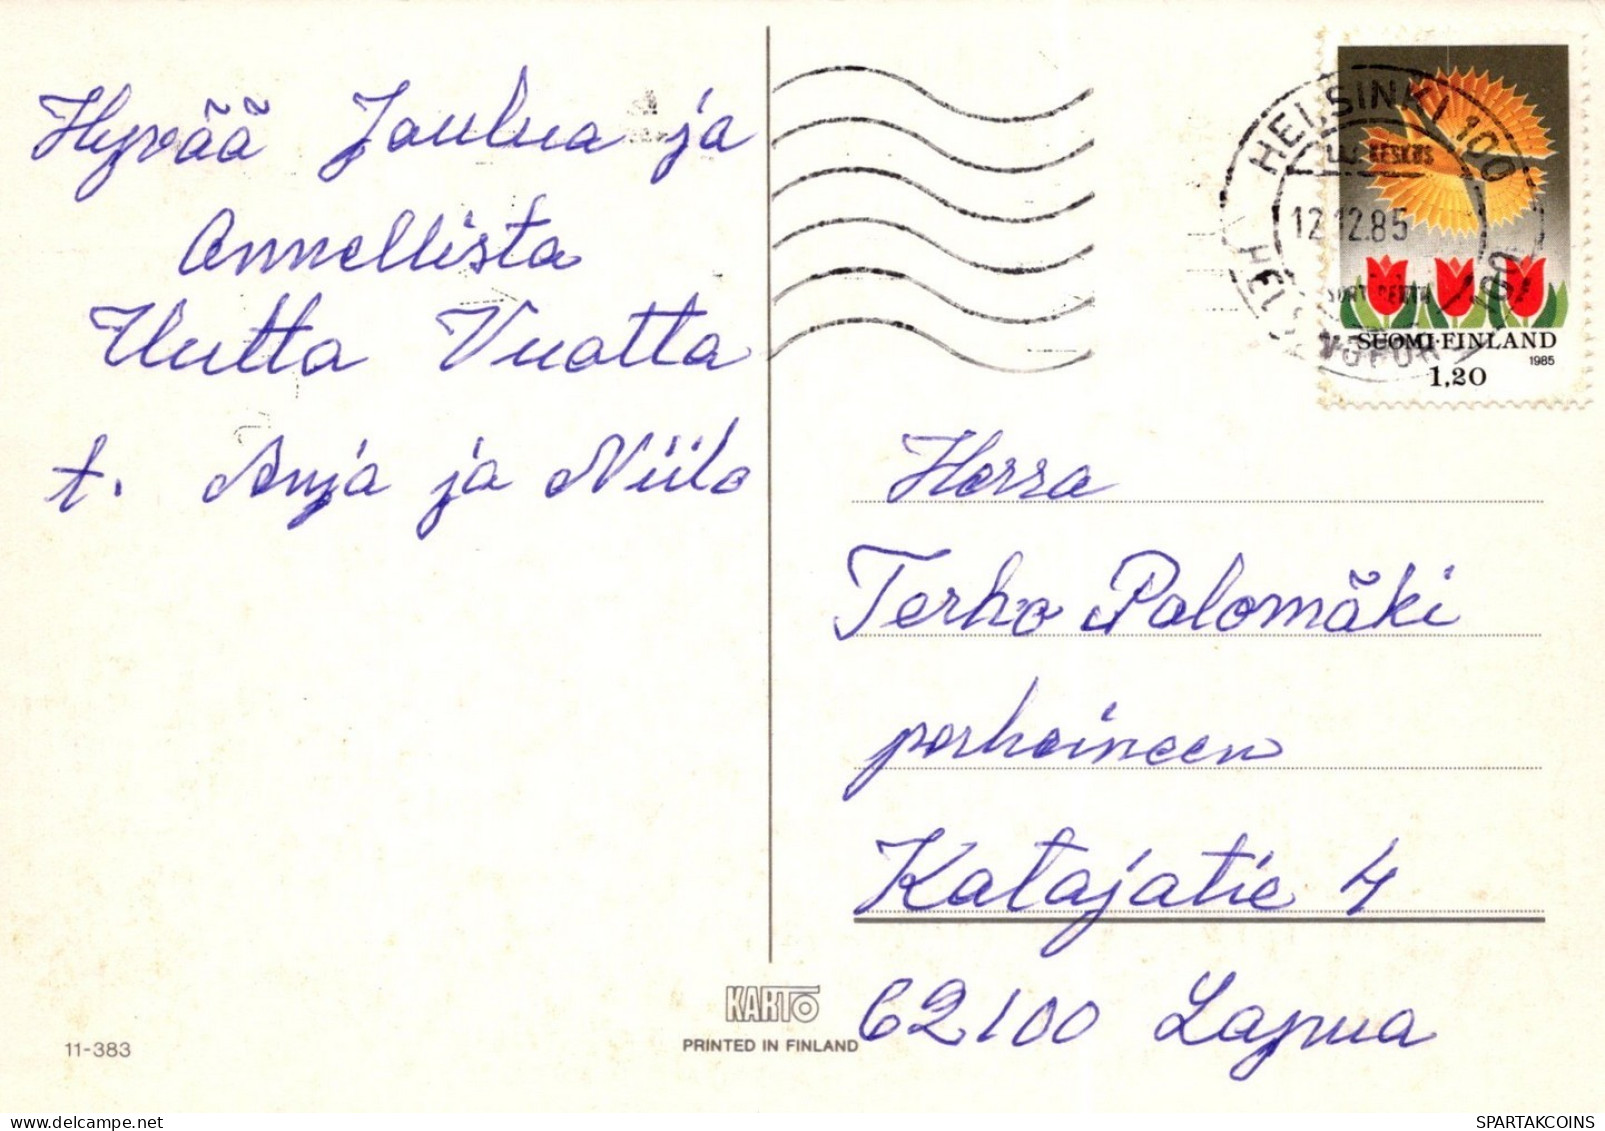 Hyvää Joulua ja
Onnellista
Uutta Vuotta
t. Anja ja Niilo
HELSINKI 100
KESKUS
12.12.85
SUOMI·FINLAND
1985
1,20
Herra
Terho Palomäki
perheineen
Katajatie 4
62100 Lapua
KARTO
PRINTED IN FINLAND
11-383
SPARTAKCOINS